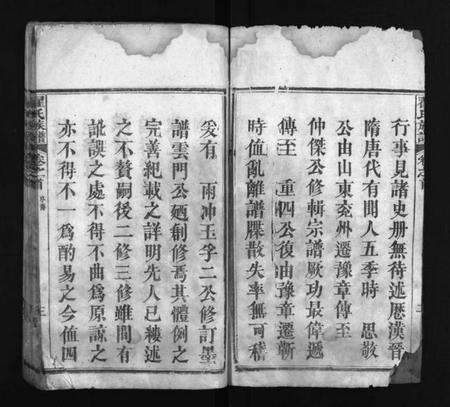 行事見諸史册無待述歷漢晉
隋唐代有聞人五季時 思敬
公由山東兗州遷豫章傳至
仲傑公修輯宗譜厥功最偉遞
傳至 重四公復由豫章遷蘄
時值亂離譜牒散失率無可稽
爰有 雨冲玉孚二公修訂墨
譜雲門公廼創修焉其體例之
完善紀載之詳明先人已縷述
之不贅嗣後二修三修雖間有
訛誤之處不得不曲爲原諒之
亦不得不一爲酌易之今值四
氏族譜 卷首
三